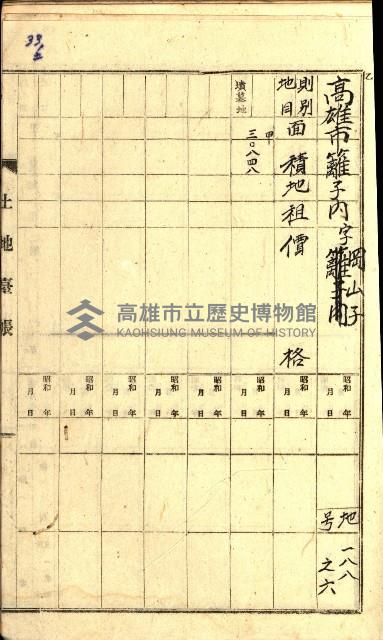 33
高雄市籬子內字籬子內
岡山子
地号 一八八之六
則別
地目
面積
地租
價格
墳墓地
甲
三〇八四八
昭和 年 月 日
昭和 年 月 日
昭和 年 月 日
昭和 年 月 日
昭和 年 月 日
昭和 年 月 日
昭和 年 月 日
土地臺帳
高雄市立歷史博物館
KAOHSIUNG MUSEUM OF HISTORY